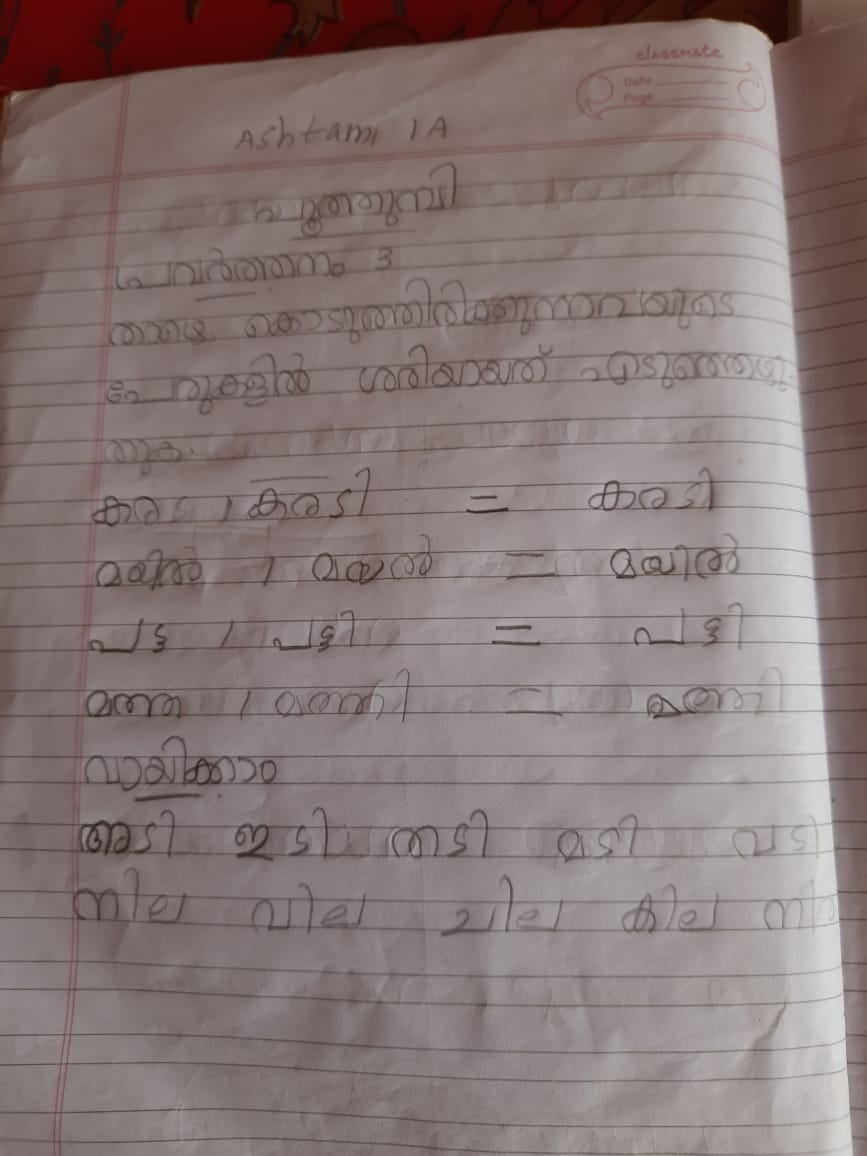 classmate
Date
Page
Ashtami 1A
പൂത്തുമ്പി
പ്രവർത്തനം 3
താഴെ കൊടുത്തിരിക്കുന്നവയുടെ
പേരുകളിൽ ശരിയായത് എടുത്തെഴു
തുക.
കരട , കരടി = കരടി
മയിൽ , മയൽ = മയിൽ
പട്ട , പട്ടി = പട്ടി
മത്ത , മത്തി = മത്തി
വായിക്കാം
അടി ഇടി തടി മടി വടി
നില വില ചില കില